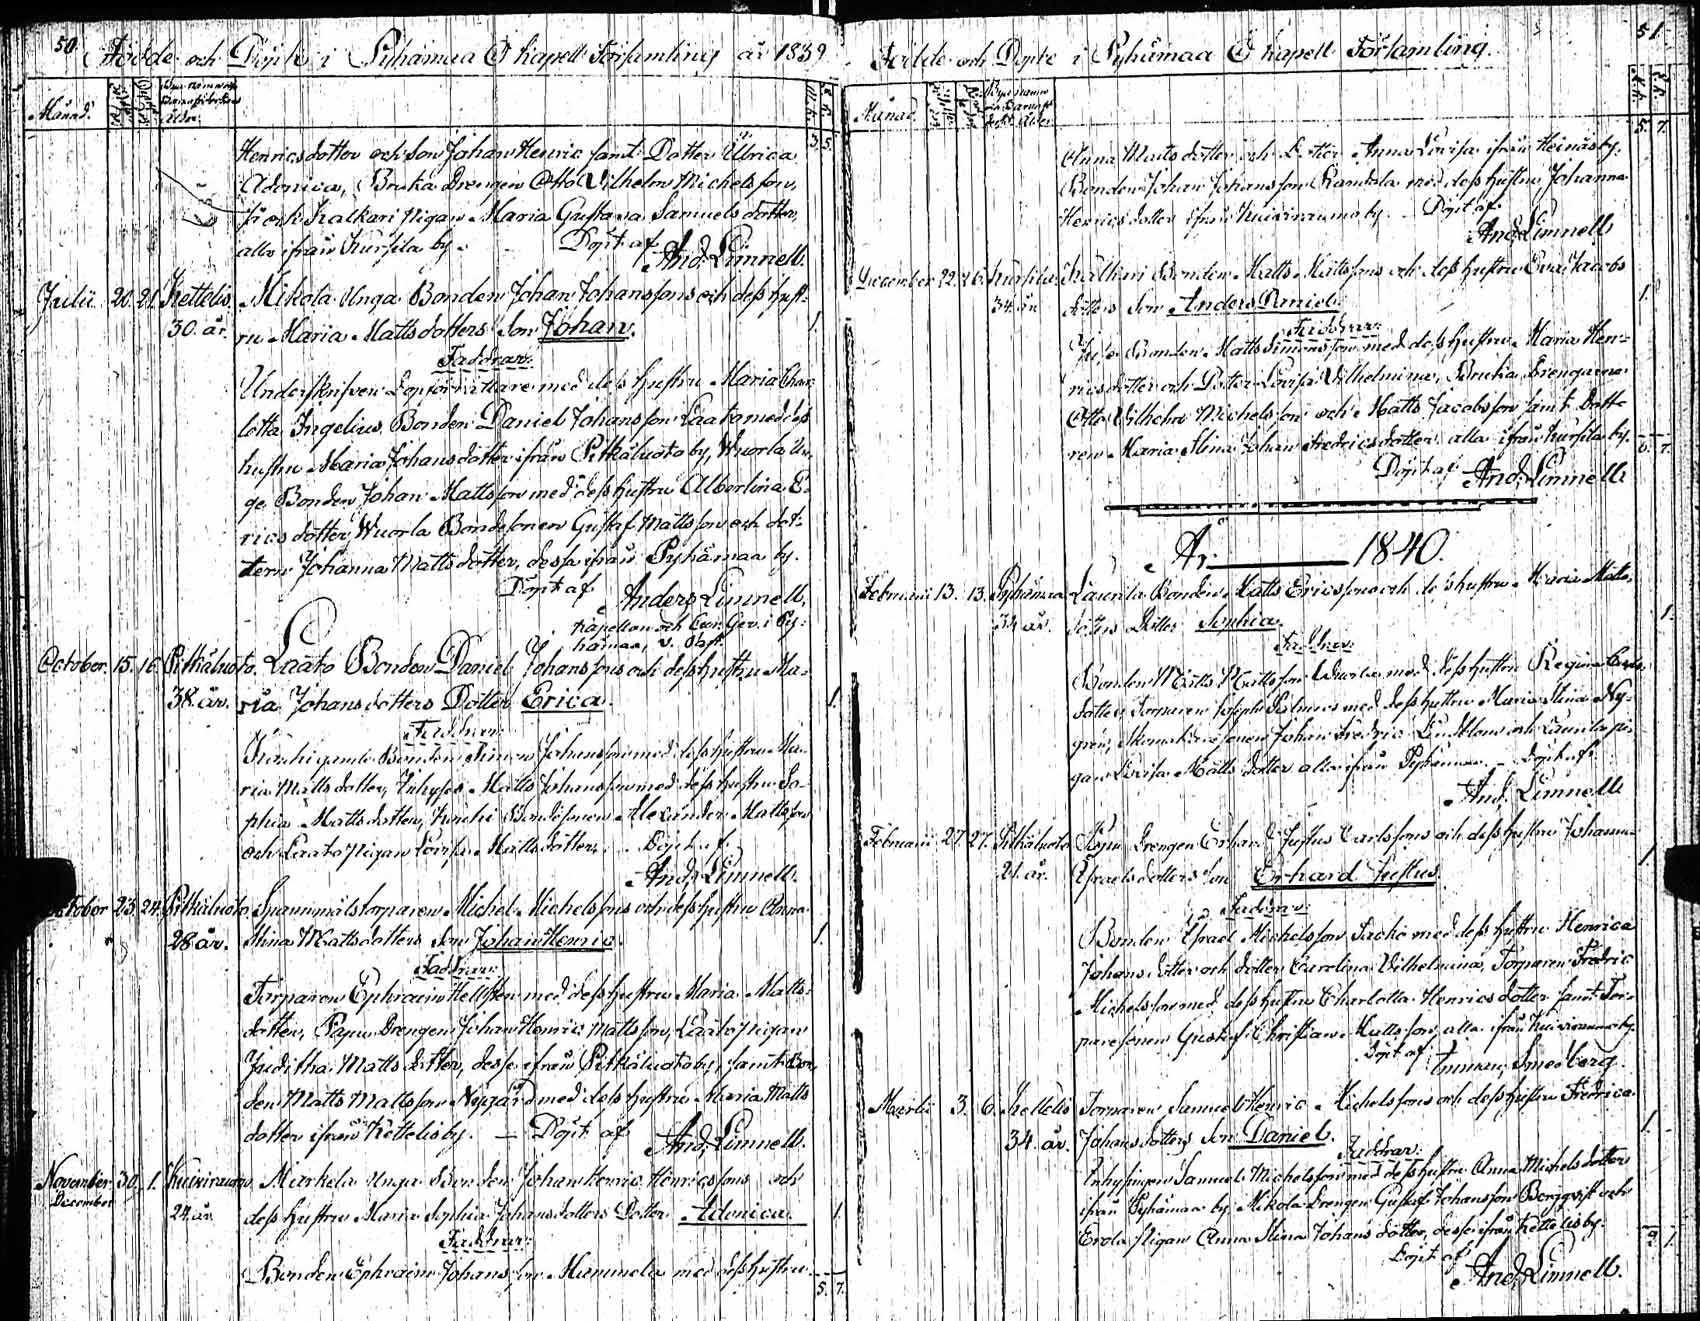 50.
Födde och Döpte i Pyhämaa Ö kapell Församling år 1839.
Månad.
3. 5.
Henricsdotter och Son Johan Henric samt Dotter Ulrica
Adonica, Bruka Drengen Otto Vilhelm Michelsson,
och Kalkari Pigan Maria Gustava Samuelsdotter,
alla ifrån Kursila by. Döpt af
And. Limnell.
Julii 20. 21. Kettelis Mikola Unga Bonden Johan Johanssons och dess hust-
30. år. ru Maria Mattsdotters Son Johan. 1.
Faddrar:
Underskrifven Dopförrättare med dess hustru Maria Char-
lotta Ingelius, Bonden Daniel Johansson Laato med dess
hustru Maria Johansdotter ifrån Pitkäluoto by, Wuorla Un-
ge Bonden Johan Mattsson med dess hustru Albertina E-
ricsdotter, Wuorla Bondesonen Gustaf Mattsson och dot-
tern Johanna Mattsdotter, dessa ifrån Pyhämaa by.
Döpt af Anders Limnell,
Kapellan och i Py-
hämaa, v. Past.
October. 15. 16. Pitkäluoto. Laato Bonden Daniel Johanssons och dess hustru Ma-
38. år. ria Johansdotters Dotter Erica. 1.
Faddrar:
gamle Bonden Simon Johansson med dess hustru Ma-
ria Mattsdotter, Matts Johansson med dess hustru So-
phia Mattsdotter, Bondesonen Alexander Mattsson
och Laato Pigan Lovisa Mattsdotter. Döpt af
And. Limnell.
October 23. 24. Pitkäluoto. Spannmålstorparen Michel Michelssons och dess hustru Anna
28 år. Stina Mattsdotters Son Johan Henric. 1.
Faddrar:
Torparen Ephraim Hellsten med dess hustru Maria Matts-
dotter, Drengen Johan Henric Mattsson, Laato Pigan
Juditha Mattsdotter, dessa ifrån Pitkäluoto by, samt Bon-
den Matts Mattsson Nygård med dess hustru Maria Matts
dotter ifrån Kettelis by. — Döpt af And. Limnell.
November 30. 1. Kuivirauma Markela Unga Bonden Johan Henric Henricssons och
December 24. år dess hustru Maria Sophia Johansdotters Dotter Adonica. 1.
Faddrar:
Bonden Ephraim Johansson Hummela med dess hustru
5. 7.
51.
Födde och Döpte i Pyhämaa Ö kapell Församling.
Månad.
5. 7.
Anna Mattsdotter och Dotter Anna Lovisa ifrån Heinäs by.
Bonden Johan Johansson Rankila med dess hustru Johanna
Henricsdotter ifrån Kuivirauma by. Döpt af
And. Limnell
December 22. 26. Kursila Kalkari Bonden Matts Mattssons och dess hustru Eva Jacobs
34. år dotters Son Anders 1.
Faddrar:
Bonden Matts Simonsson med dess hustru Maria Hen-
ricsdotter och Dotter Lovisa Vilhelmina, Bruka Drengarne
Otto Vilhelm Michelsson och Matts Jacobsson samt Dott-
ren Maria Stina Johan Fredricsdotter, alla ifrån Kursila by. 6. 7.
Döpt af And. Limnell
År 1840.
Februarii 13. 13. Pyhämaa Launila Bonden Matts Ericssons och dess hustru Maria Matts-
34 år. dotters Dotter Sophia. 1.
Faddrar:
Bonden Matts Mattsson Wuorla med dess hustru Regina
dotter, Torparen Joseph med dess hustru Maria Stina Ny-
gren, Johan Fredric Lindblom och Launila pi-
gan Lovisa Mattsdotter alla ifrån Pyhämaa. Döpt af
And. Limnell
Februarii 27. 27. Pitkäluoto Drengen Erhard Justus Carlssons och dess hustru Johanna
21. år. Israelsdotters Son Erhard Justus. 1.
Faddrar:
Bonden Israel Michelsson med dess hustru Henrica
Johansdotter och dotter Carolina Vilhelmina, Torparen Fredric
Michelsson med dess hustru Charlotta Henricsdotter samt Tor-
paresonen Gustaf Christian Mattsson, alla ifrån Kuivirauma by.
Döpt af Smedberg.
Martii 3. 6. Kettelis Torparen Samuel Henric Michelssons och dess hustru Fredrica
34. år. Johansdotters Son Daniel. 1.
Faddrar:
Inhysingen Samuel Michelsson med dess hustru Anna Michelsdotter
ifrån Pyhämaa by, Mikola Drengen Gustaf Johansson Bergqvist och
Erola Pigan Anna Stina Johansdotter, dessa ifrån Kettelis by.
Döpt af
And. Limnell.